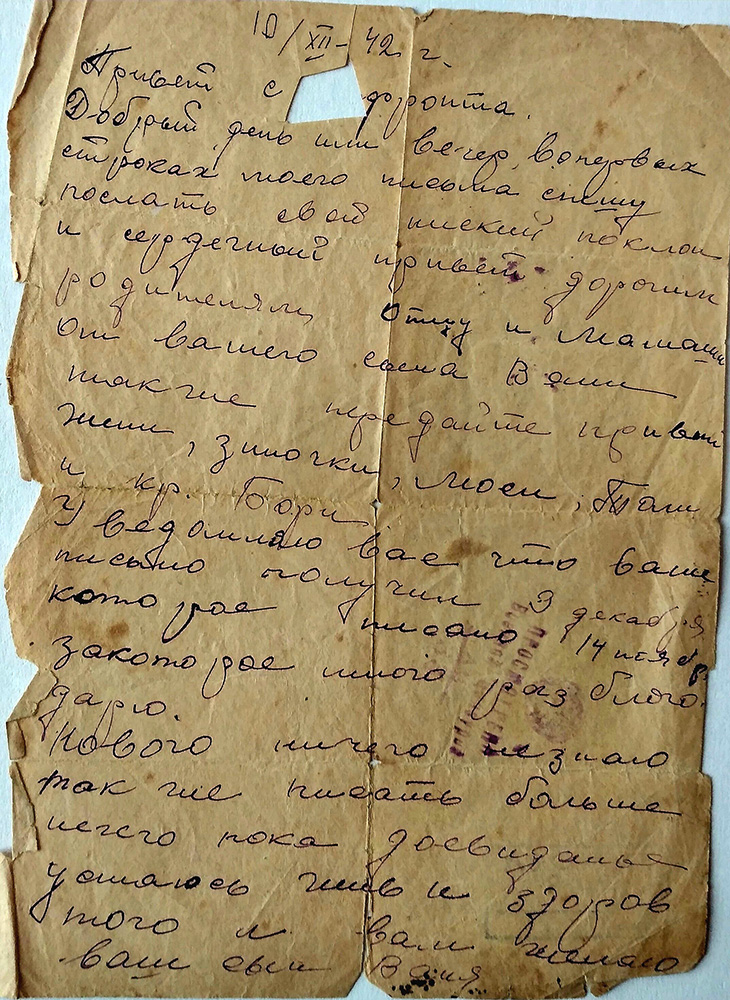 10/XII-42 г.
Привет с фронта.
Добрый день или вечер, вопервых
строках моего письма спешу
послать свой ниский поклон
и сердечный привет дорогим
родителям, Отцу и Мамаши
От вашего сына Вани
также передайте привет
Жени, Зиночки, Моси, Тони
и кр. Бори
Уведомляю вас что ваше
письмо получил 9 декабря
которае писано 14 ноября
закоторае много раз благо
дарю.
Нового ничего незнаю
так же писать больше
нечего пока досвиданье
устаюсь жив и здоров
того и вам желаю
ваш сын Ваня
ПРОСМОТРЕНО